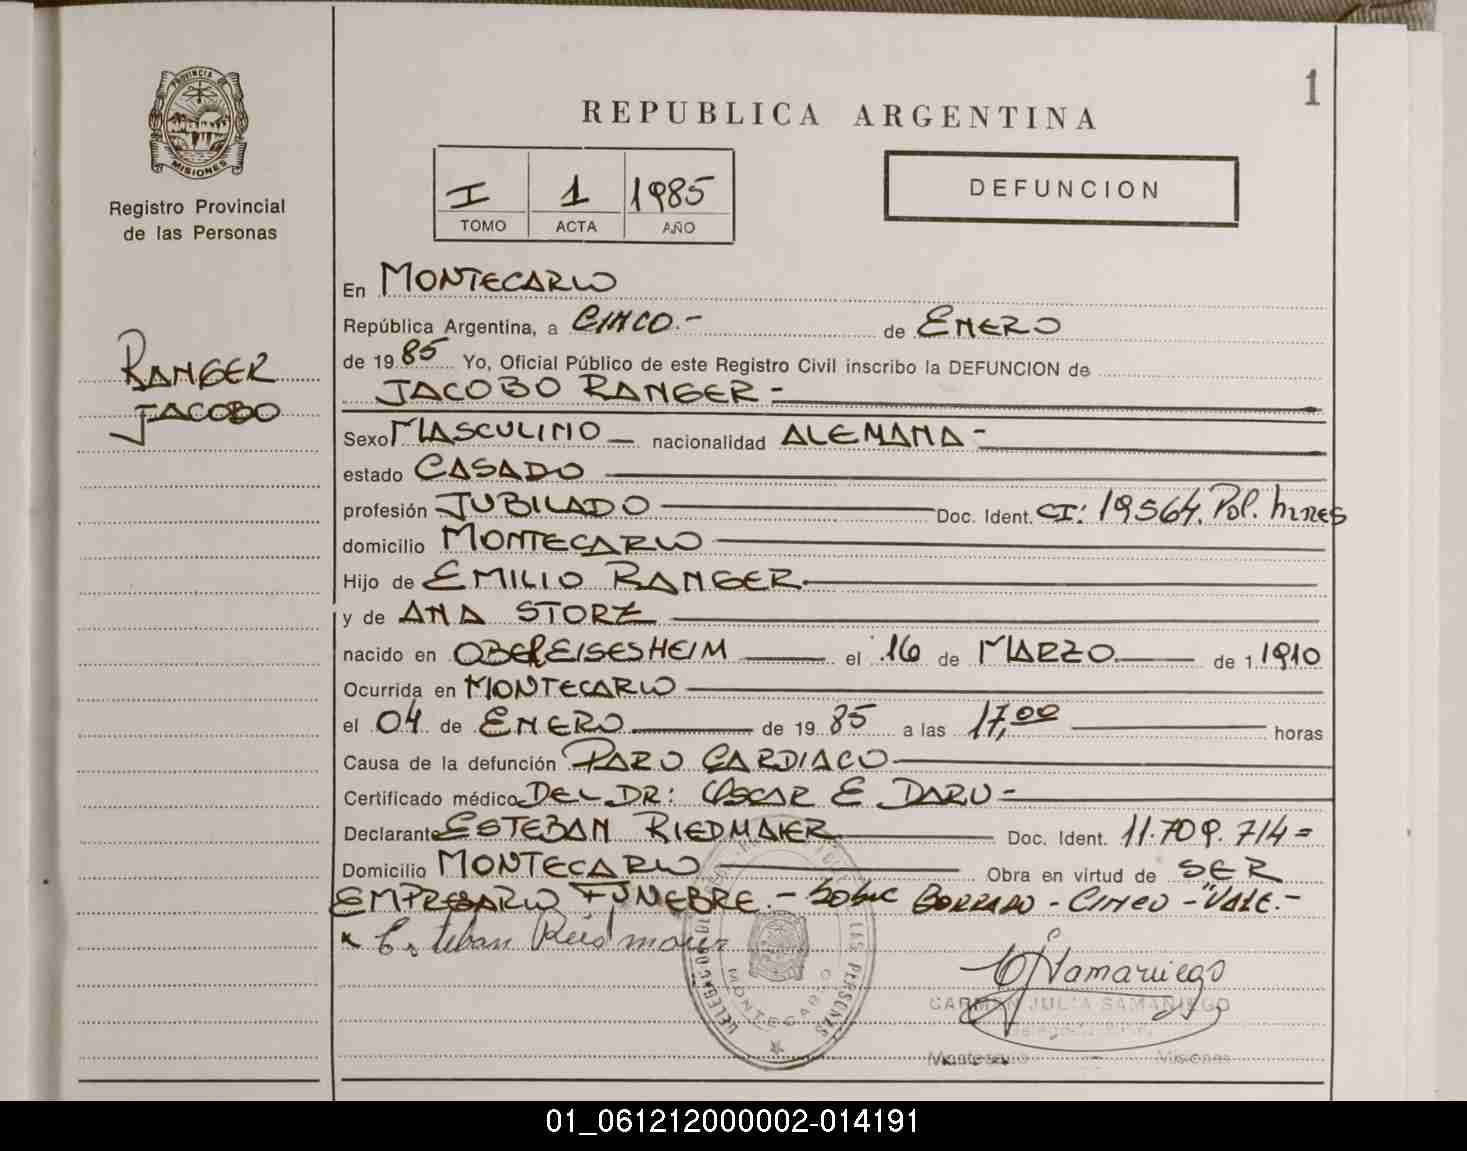 1
PROVINCIA DE
MISIONES
Registro Provincial
de las Personas
RANGER
JACOBO
REPUBLICA ARGENTINA
I 1 1985
TOMO ACTA AÑO
DEFUNCION
En MONTECARLO
República Argentina, a CINCO.- de ENERO
de 1985 Yo, Oficial Público de este Registro Civil inscribo la DEFUNCION de
JACOBO RANGER -
Sexo MASCULINO nacionalidad ALEMANA -
estado CASADO
profesión JUBILADO Doc. Ident. CI: 19564. Pol. Mnes
domicilio MONTECARLO
Hijo de EMILIO RANGER
y de ANA STORZ
nacido en OBEREISESHEIM el 16 de MARZO de 1.1910
Ocurrida en MONTECARLO
el 04 de ENERO de 1985 a las 17,00 horas
Causa de la defunción PARO CARDIACO
Certificado médico DEL DR: OSCAR E DARU -
Declarante ESTEBAN RIEDMAIER Doc. Ident. 11.709.714=
Domicilio MONTECARLO Obra en virtud de SER
EMPRESARIO FUNEBRE.- Sobre BORRADO - CINCO - "VALE.-
x Esteban Riedmaier
LAS PERSONAS
MONTECARLO
CJSamaniego
CARMEN JULIA SAMANIEGO
Montecarlo - Misiones
01_061212000002-014191